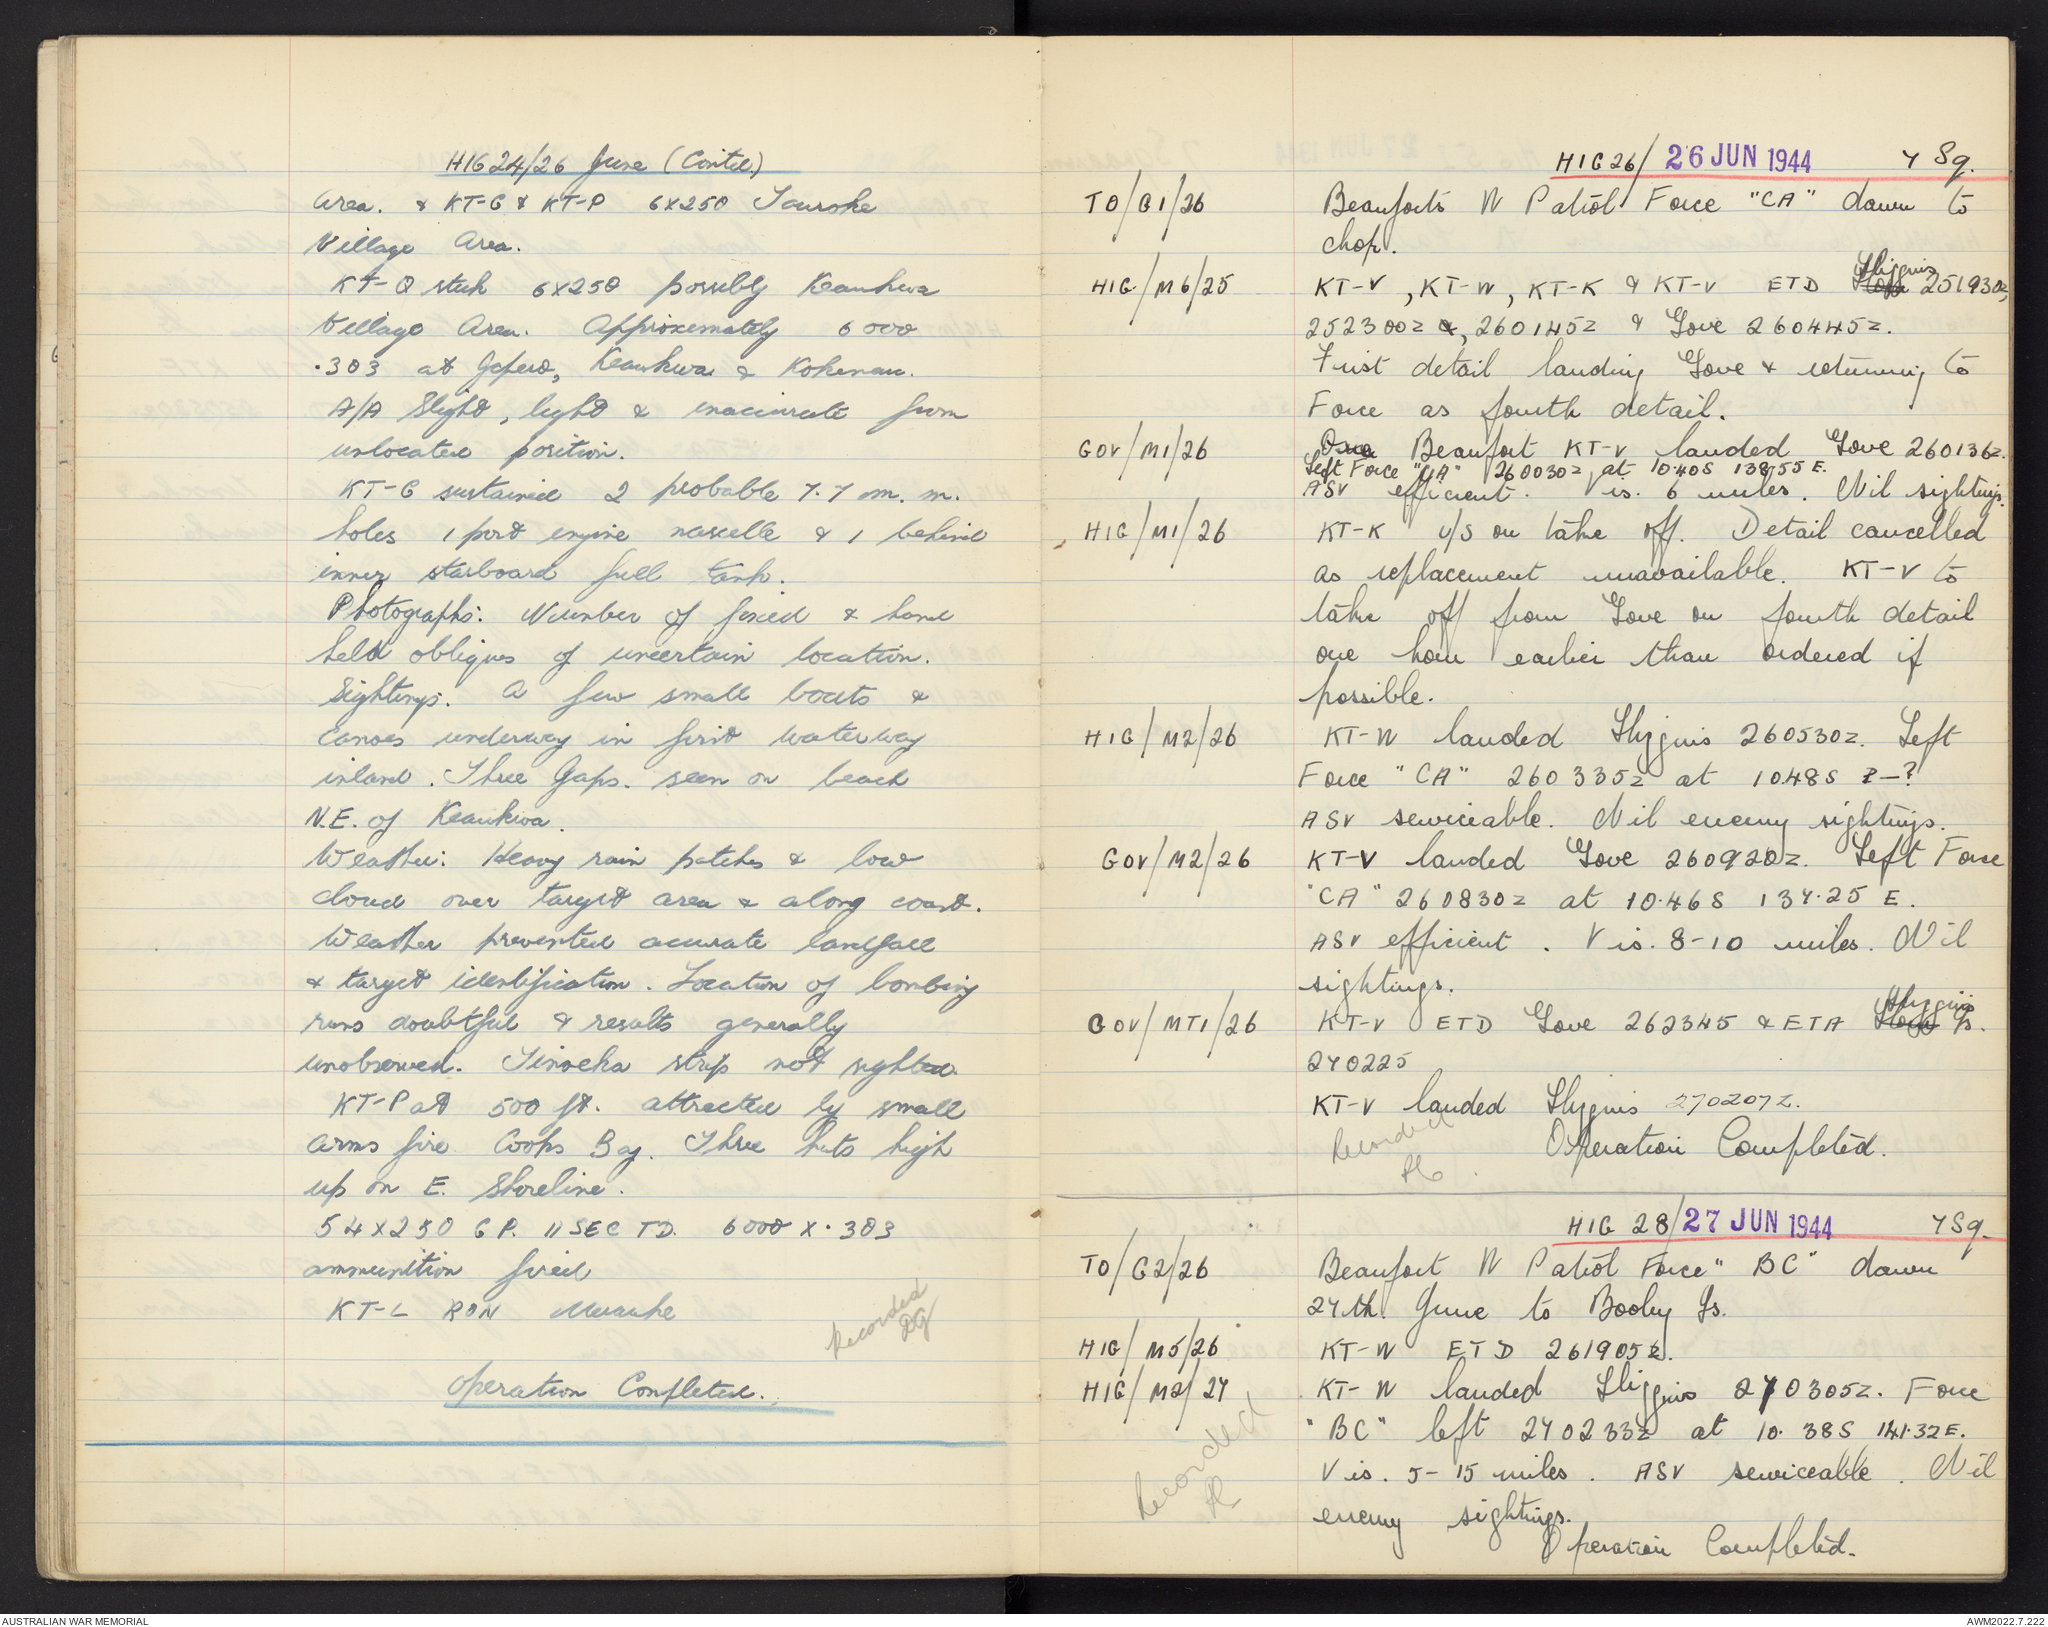 HIG 24/26 June (Contd.)
Area. & KT-G & KT-P 6x250 Iauroke
Village Area.
KT-Q stick 6x250 possibly Keaukwa
Village Area. Approximately 6000
.303 at Keaukwa & Kokenau.
A/A Slight, light & inaccurate from
unlocated position.
KT-G sustained 2 probable 7.7 m.m.
holes 1 port engine nascelle & 1 behind
inner starboard fuel tank.
Photographs: Number of fixed & hand
held obliques of uncertain location.
Sightings: A few small boats & 
canoes underway in first waterway
inland. Three Japs. seen on beach
N.E. of Keaukwa.
Weather: Heavy rain patches & low
cloud over target area & along coast.
Weather prevented accurate landfall
& target identification. Location of bombing
runs doubtful & results generally
unobserved. Timoeka strip not sighted.
KT-P at 500 ft. attracted by small
arms fire Cooks Bay. Three huts high
up on E. Shoreline.
54x250 G.P. 11 SEC TD. 6000 x .303
ammunition fired
KT-L RON Merauke
Recorded
Operation Completed.
HIG 26/ 26 JUN 1944 7 Sq.
TO/G1/26 Beauforts N Patrol Force "CA" dawn to
chop.
HIG/M6/25 KT-V, KT-W, KT-K & KT-V ETD Higgins 251930z,
252300z, 260145z & Gove 260445z.
First detail landing Gove & returning to
Force as fourth detail.
GOV/M1/26 One Beaufort KT-V landed Gove 260136z.
Left Force "CA" 260030z at 10.40S 138.55 E.
ASV efficient. Vis. 6 miles. Nil sightings.
HIG/M1/26 KT-K U/S on take off. Detail cancelled
as replacement unavailable. KT-V to
take off from Gove on fourth detail
one hour earlier than ordered if
possible.
HIG/M2/26 KT-W landed Higgins 260530z. Left
Force "CA" 260335z at 1048S ?-?
ASV serviceable. Nil enemy sightings.
GOV/M2/26 KT-V landed Gove 260920z. Left Force
"CA" 260830z at 10.46S 137.25 E.
ASV efficient. Vis. 8-10 miles. Nil
sightings.
GOV/MT1/26 KT-V ETD Gove 262345 & ETA Higgins
270225
KT-V landed Higgins 270207z.
Recorded
Operation Completed.
HIG 28/ 27 JUN 1944 7 Sq.
TO/G2/26 Beaufort N Patrol Force "BC" dawn
27th. June to Booby Is.
HIG/M5/26 KT-W ETD 261905z.
HIG/M2/27 KT-W landed Higgins 270305z. Force
"BC" left 270233z at 10.38S 141.32E.
Vis. 5-15 miles. ASV serviceable. Nil
enemy sightings.
Recorded
Operation Completed.
AUSTRALIAN WAR MEMORIAL
AWM2022.7.222